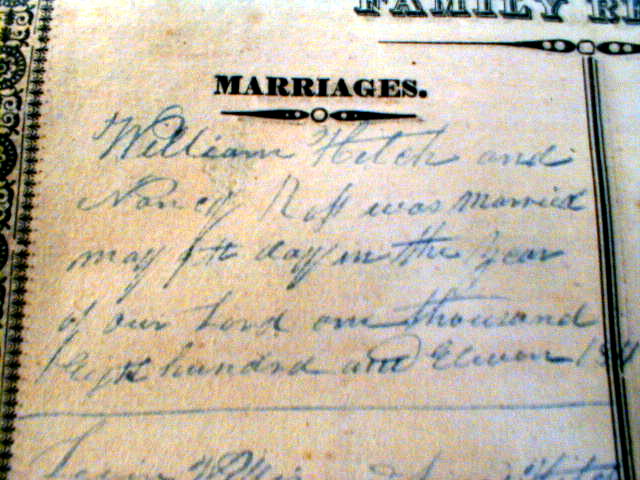 FAMILY RE
MARRIAGES.
William Hitch and
Nancy Ross was married
may 9th day in the year
of our Lord one thousand
Eight hundrd and Eleven 1811